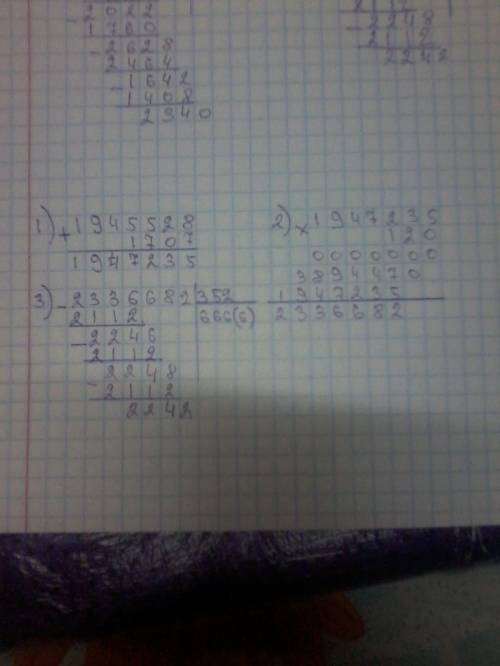 2022
1760
2628
2464
1642
1408
2340
2248
2112
2242
1) + 1945528
1707
1947235
2) × 1947235
120
0000000
3894470
1947235
2336682
3) - 2336682 | 352
2112 | 666(6)
- 2246
2112
- 2248
- 2112
2242